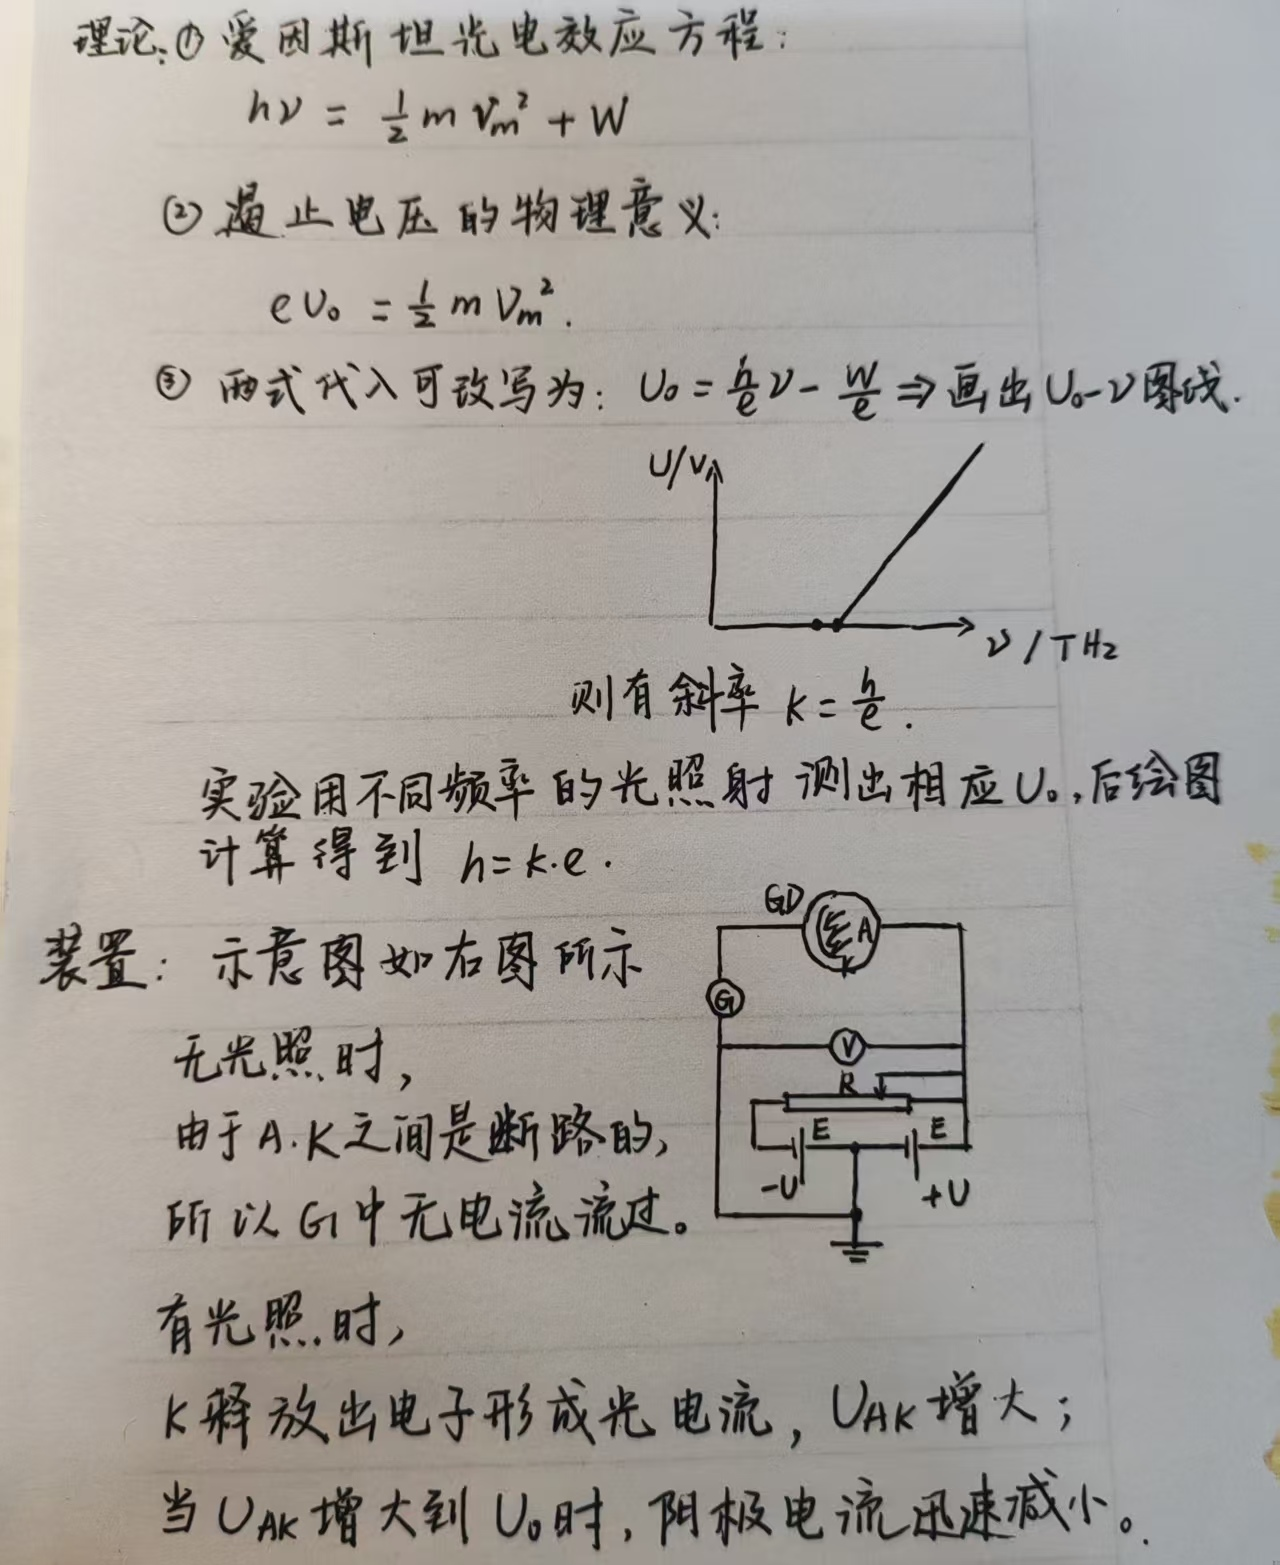 理论:① 爱因斯坦光电效应方程:
hν = ½ m vₘ² + W
② 遏止电压的物理意义:
eU₀ = ½ m Vₘ².
③ 两式代入可改写为: U₀ = h/e ν - W/e ⇒ 画出 U₀-ν 图线.
U/V
ν / THz
则有斜率 k = h/e.
实验用不同频率的光照射 测出相应U₀,后绘图
计算得到 h=k·e.
GD
A
K
装置: 示意图如右图所示
G
无光照时,
V
R
由于A.K之间是断路的,
E
E
-U
+U
所以G中无电流流过。
有光照时,
K释放出电子形成光电流, U_AK增大;
当U_AK增大到U₀时,阳极电流迅速减小。